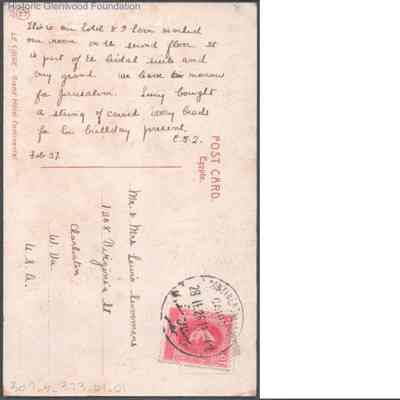 Historic Glenwood Foundation
This is our hotel & I have marked
our room on the second floor. It
is part of the bridal suite and
very grand. We leave to morrow
for Jerusalem. bought
a string of carved ivory beads
for her birthday present.
Feb 27.
LE CAIRE
POST CARD.
Egypte.
Mr. & Mrs
1208 Virginia St
Charleston
W. Va
U.S.A.
28 II
307